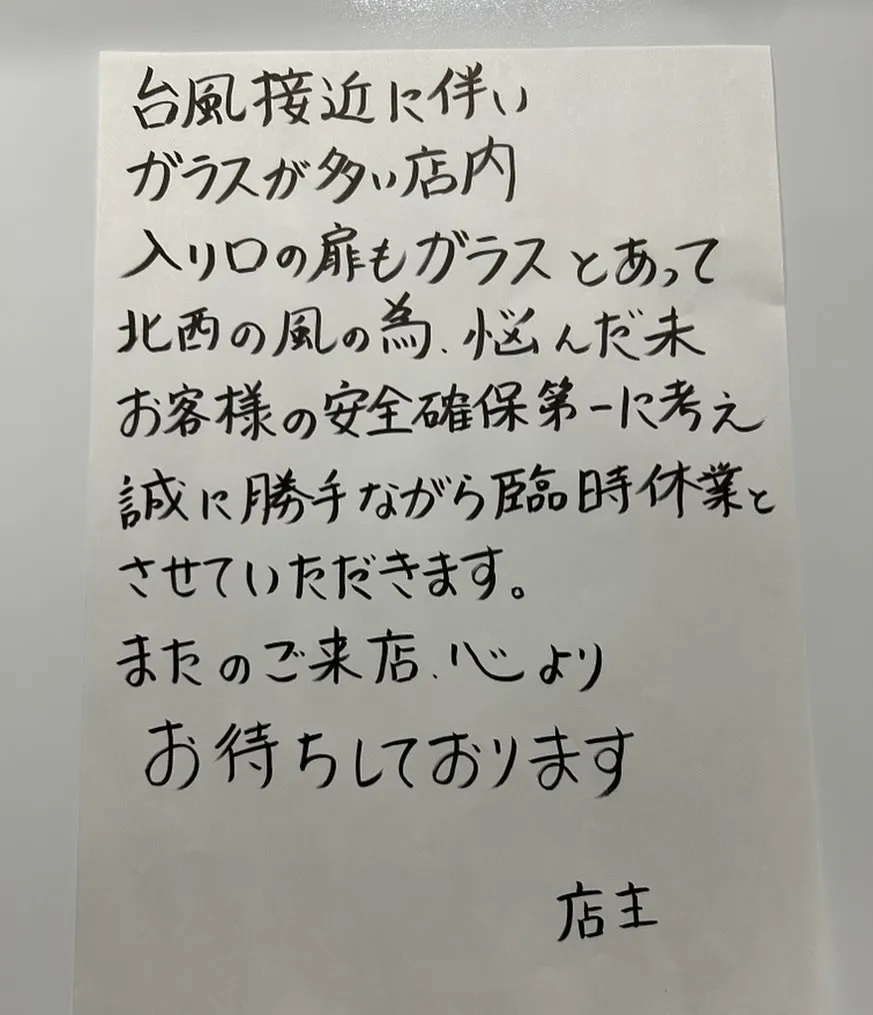 台風接近に伴い
ガラスが多い店内
入り口の扉もガラスとあって
北西の風の為、悩んだ末
お客様の安全確保第一に考え
誠に勝手ながら臨時休業と
させていただきます。
またのご来店、心より
お待ちしております
店主